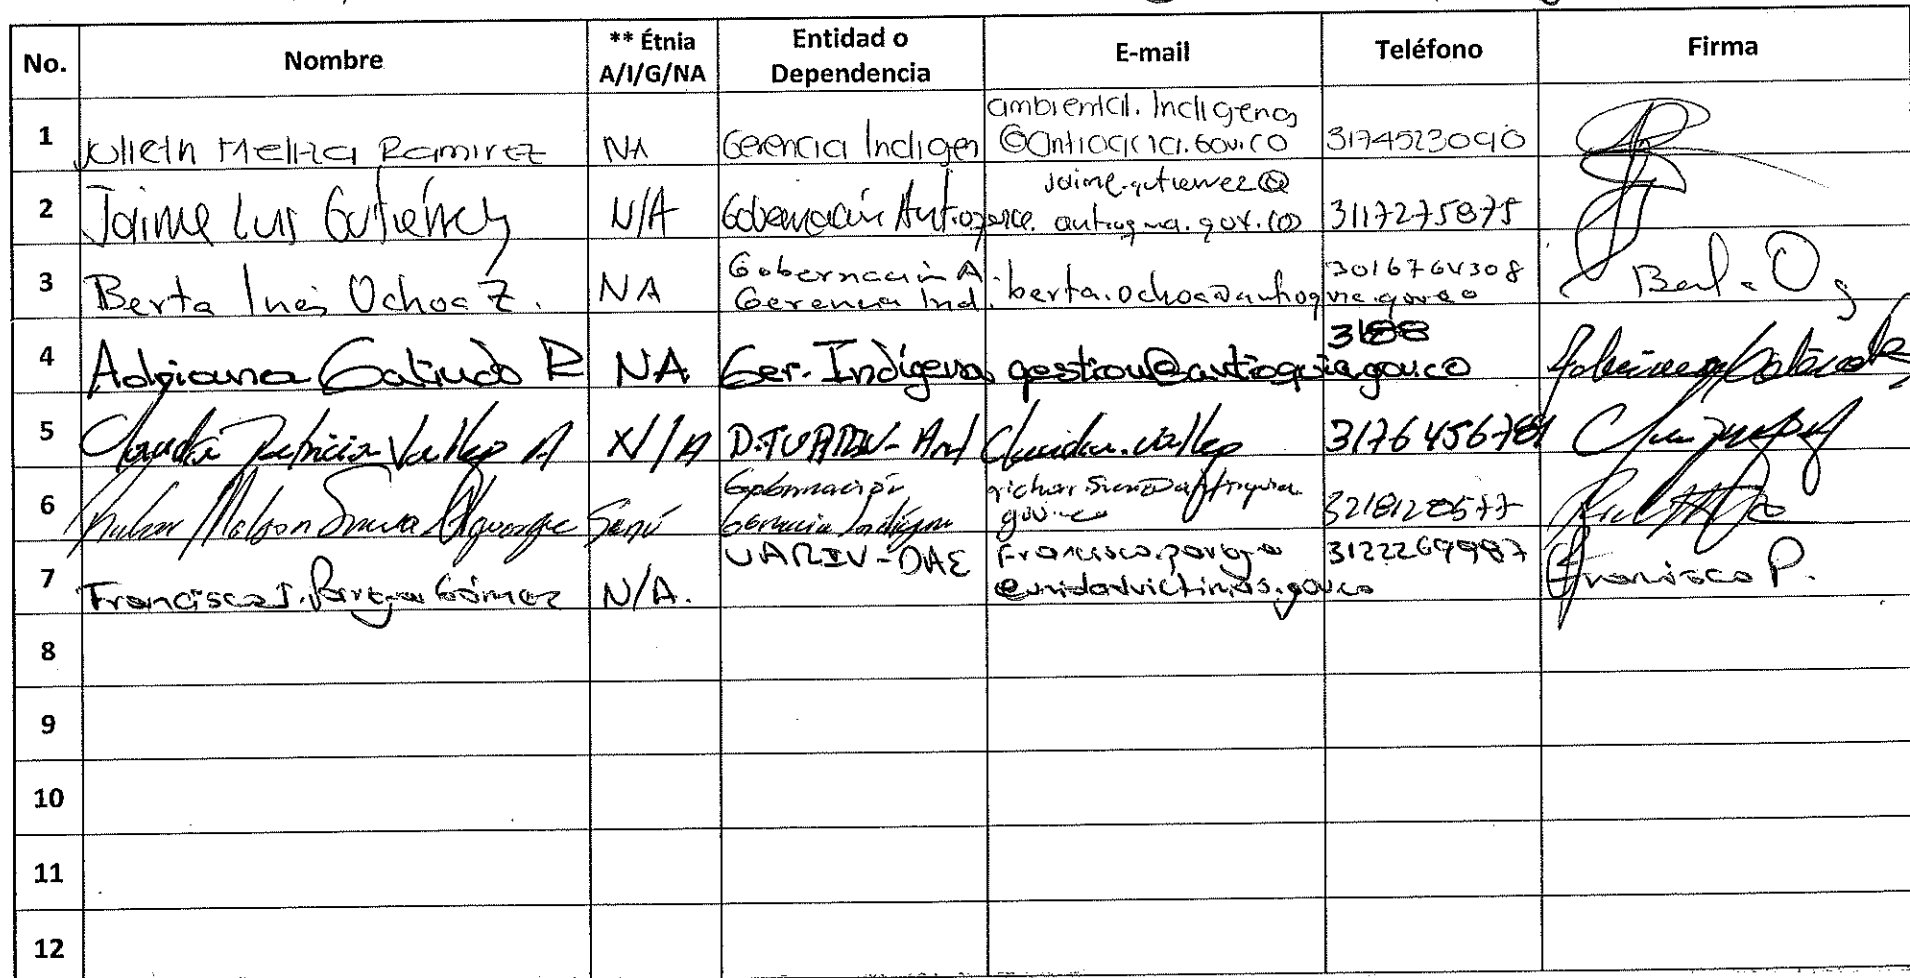 No. Nombre ** Étnia A/I/G/NA Entidad o Dependencia E-mail Teléfono Firma
1 Julieth Meliza Ramirez NA Gerencia Indigen ambiental.Indigenas @Antioquia.gov.co 3174523090
2 Jaime Luis Gutiérrez N/A Gobernación Antioquia jaime.gutierrez@ antioquia.gov.co 3117275875
3 Berta Inés Ochoa Z. NA Gobernación A. Gerencia Ind. berta.ochoa@antioquia.gov.co 3016764308
4 Adriana Galindo R NA Ger. Indígena gestion@antioquia.gov.co 3188
5 Claudia Patricia Vallejo A N/A D.T UARIV-Ant Claudia.vallejo
6 Senú Gobernación Gerencia Indígena
7 Francisco J. Gómez N/A. UARIV-DAE @unidadvictimas.gov.co 3122269987 Francisco P.
8
9
10
11
12